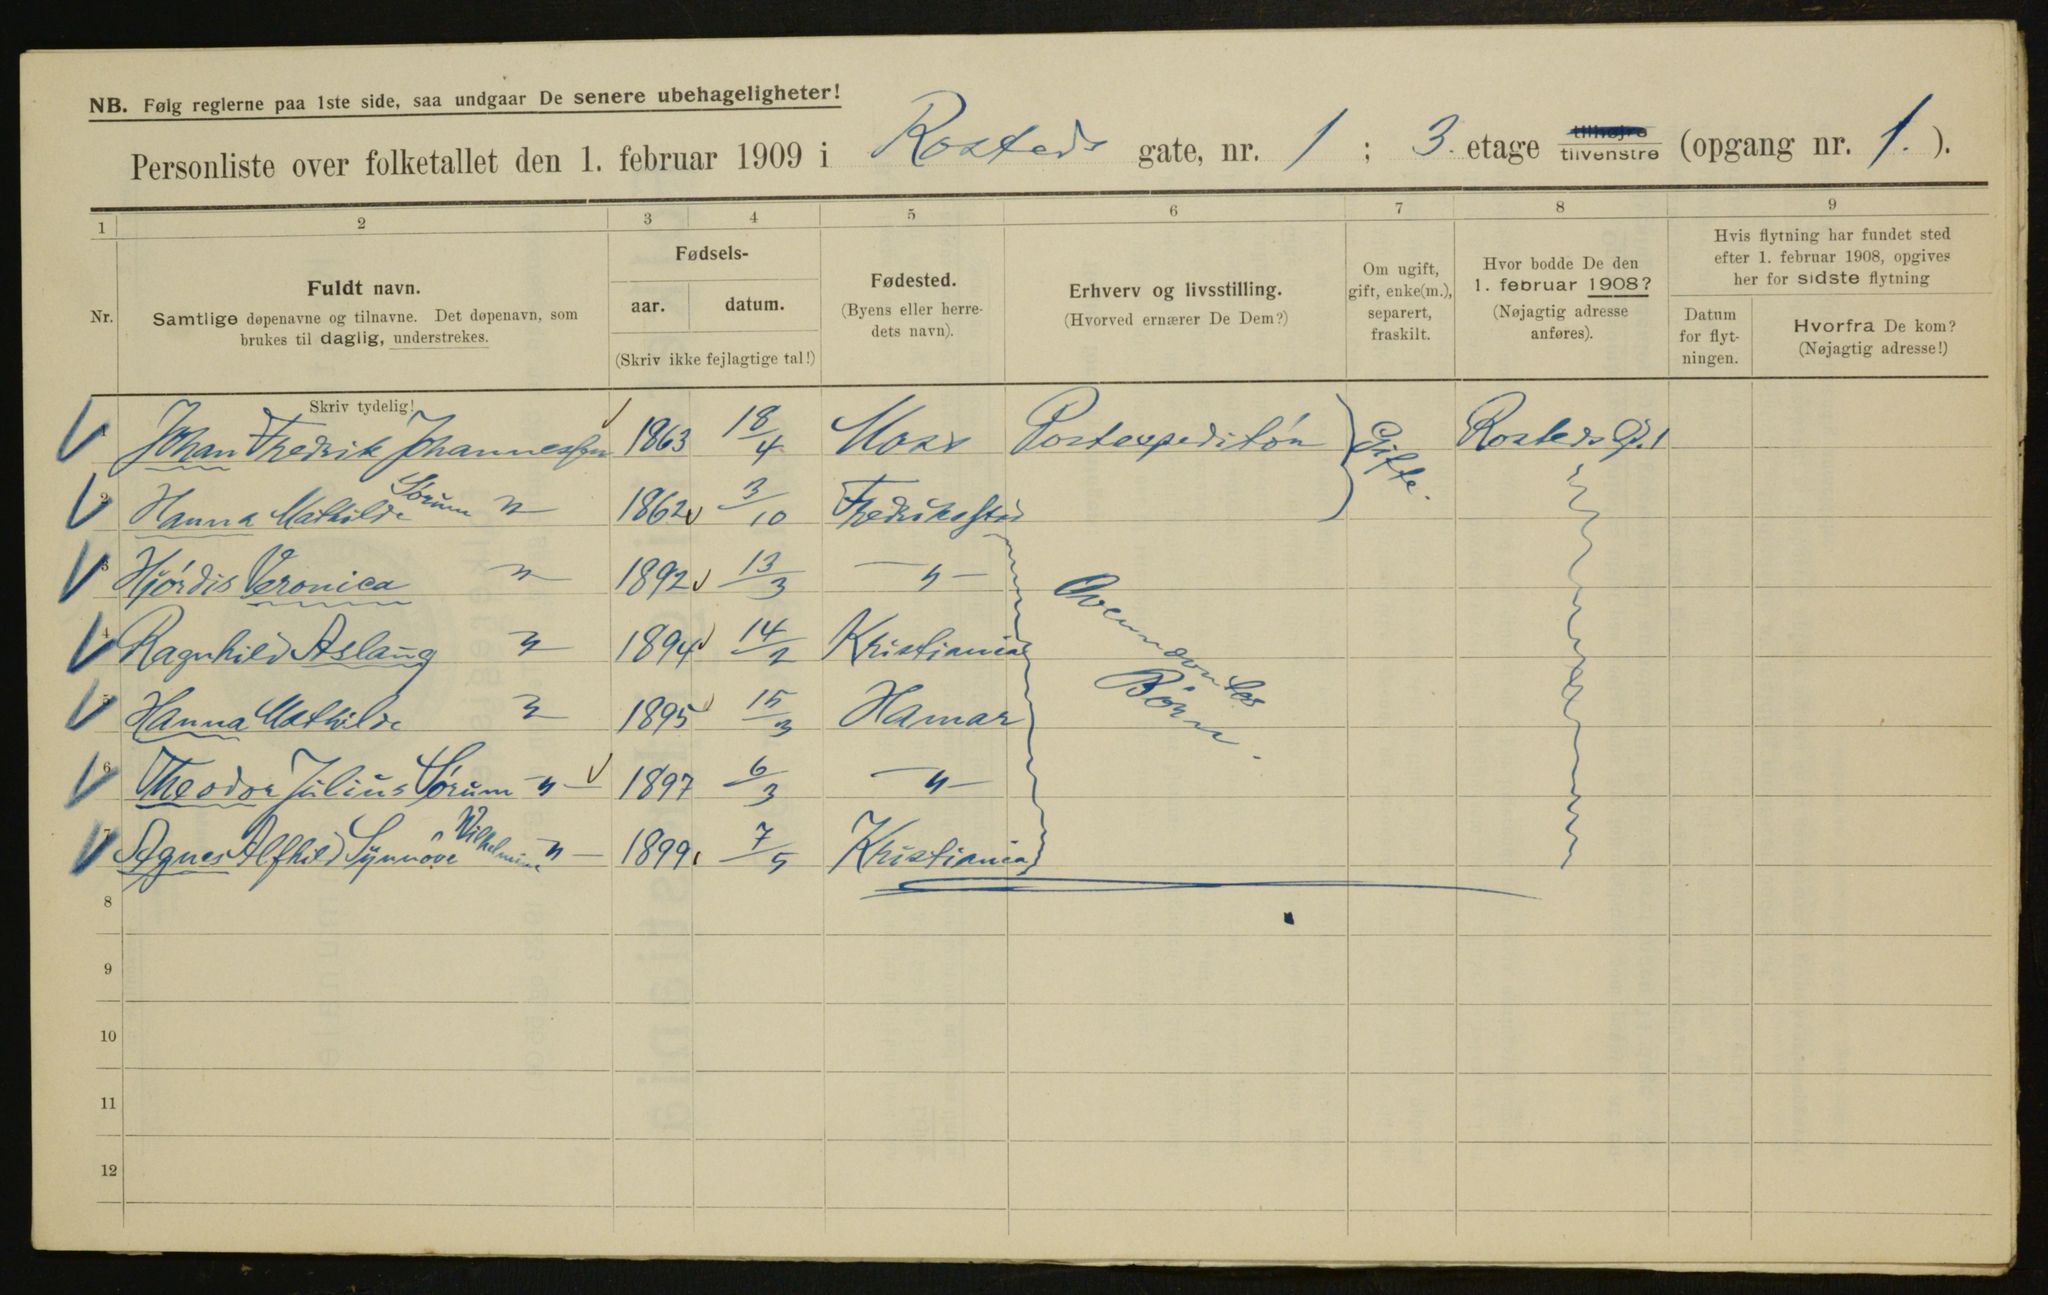 NB. Følg reglerne paa 1ste side, saa undgaar De senere ubehageligheter!
Personliste over folketallet den 1. februar 1909 i Rosteds gate, nr. 1 ; 3. etage tilhøjre tilvenstre (opgang nr. 1. ).
1 2 3 4 5 6 7 8 9
Nr.
Fuldt navn.
Samtlige døpenavne og tilnavne. Det døpenavn, som
brukes til daglig, understrekes.
Fødsels-
aar. datum.
(Skriv ikke fejlagtige tal!)
Fødested.
(Byens eller herre-
dets navn).
Erhverv og livsstilling.
(Hvorved ernærer De Dem?)
Om ugift,
gift, enke(m.),
separert,
fraskilt.
Hvor bodde De den
1. februar 1908?
(Nøjagtig adresse
anføres).
Hvis flytning har fundet sted
efter 1. februar 1908, opgives
her for sidste flytning
Datum
for flyt-
ningen.
Hvorfra De kom?
(Nøjagtig adresse!)
Skriv tydelig!
Johan Fredrik Johannessen 1863 18/4 Moss Postexpeditør Gifte. Rosteds Gt. 1
2 Hanna Mathilde Sørum " 1862 3/10 Fredriksstad
3 Hjørdis Veronica " 1892 13/3 — " —
4 Ragnhild Aslaug " 1894 14/2 Kristiania
5 Hanna Mathilde " 1895 15/3 Hamar
Ovennævntes
Børn.
6 Theodor Julius Sørum — " — 1897 6/3 — " —
7 Agnes Alfhild Synnöve Vilhelmine — " — 1899 7/5 Kristiania
8
9
10
11
12